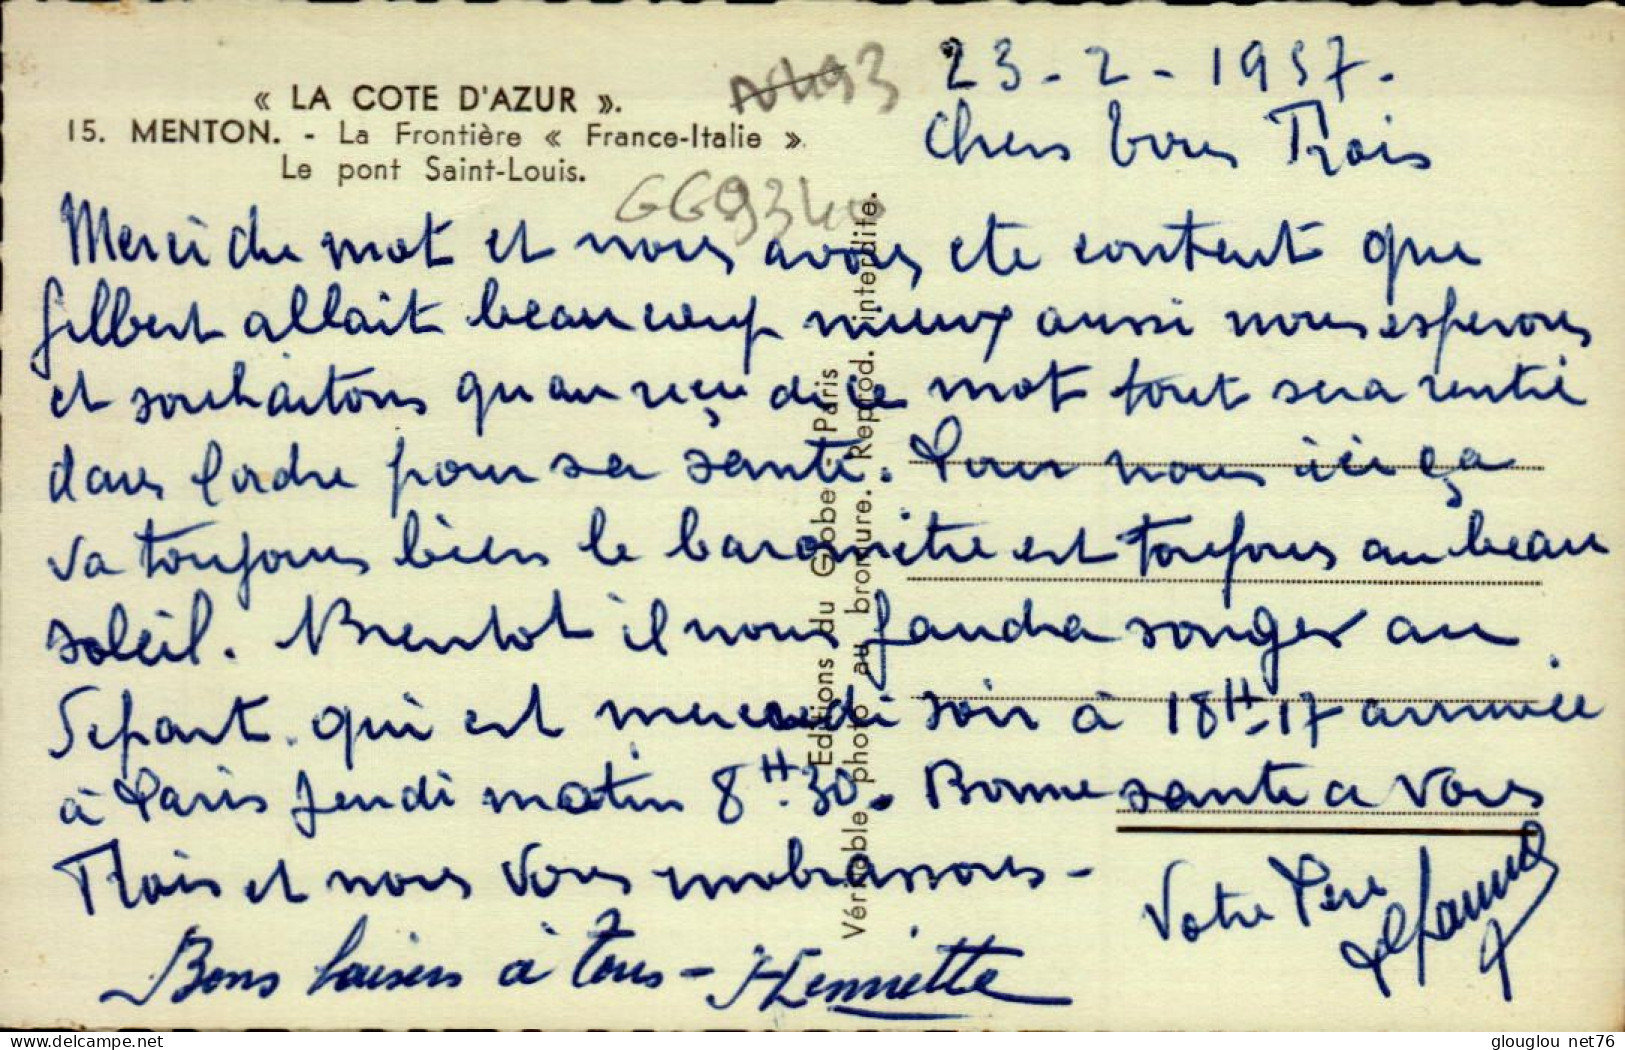 « LA COTE D'AZUR ».
15. MENTON. - La Frontière « France-Italie »
Le pont Saint-Louis.
23-2-1957.
Chers vous Trois
Merci du mot et nous avons ete content que
Gilbert allait beaucoup mieux aussi nous esperons
et souhaitons qu'au reçu de ce mot tout sera rentré
dans l'ordre pour sa santé. Pour nous ici ça
va toujours bien le baromètre est toujours au beau
soleil. Bientot il nous faudra songer au
Depart qui est mercredi soir à 18H-17 arrivée
à Paris Jeudi matin 8H.30. Bonne sante a Vous
Trois et nous vous embrassons -
Votre Père
Bons baisers à tous - Henriette
Editions du Globe - Paris
Véritable photo au bromure. Reprod. interdite.
MENTON
glouglou net76